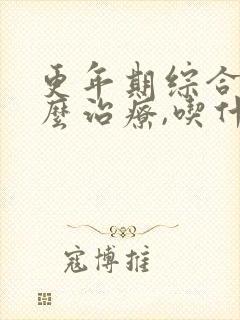 更年期综合
麼治療,喫什
寇博推